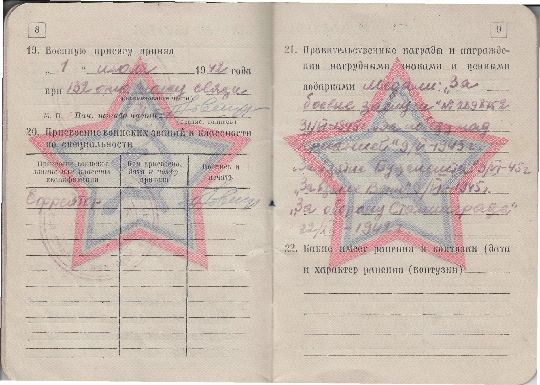 8
19. Военную присягу принял
„ 1 “ июля 1942 года
при 132 отд. полку связи
М. П. Нач. штаба части
20. Присвоение воинских званий и классности
по специальности
Присвоено воинское звание или классная квалификация
Кем присвоено, дата и номер приказа
Подпись и печать
Ефрейтор
9
21. Правительственные награды и награжде-
ния нагрудными знаками и ценными
подарками медали: „За
боевые заслуги“ №
„За победу над
Германией“ 9/V-1945 г.
„За взятие Будапешта“ 9/VI-45 г.
„За взятие Вены“ 1945 г.
„За оборону Сталинграда“
22/XII-1942 г.
22. Какие имеет ранения и контузии (дата
и характер ранения (контузии)